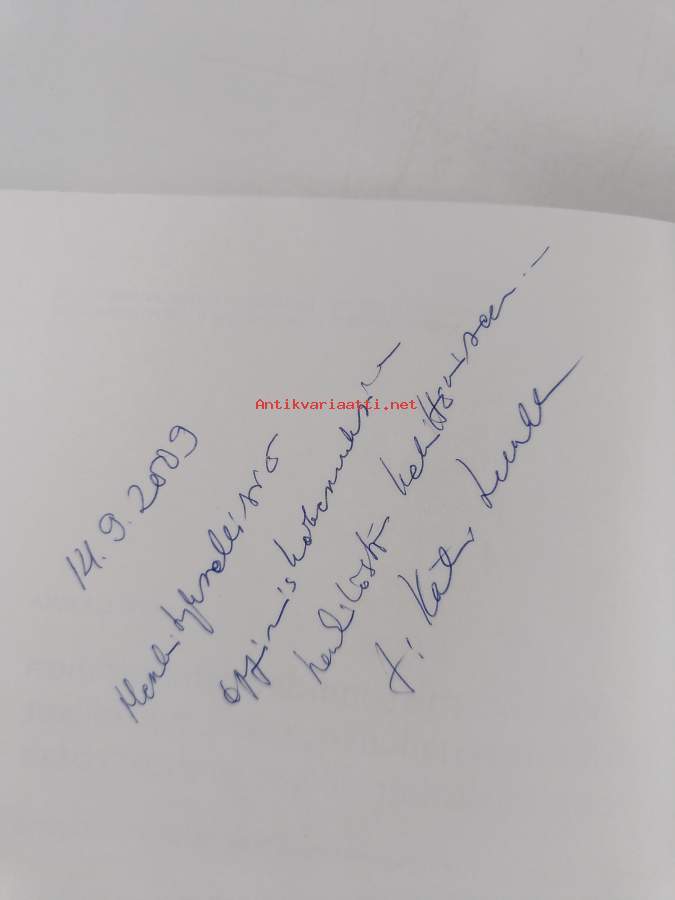 14.9.2009
Merkityksellisiä
oppimiskokemuksia
henkilöstä kehittämiseen.–
t: Käti
Antikvariaatti.net